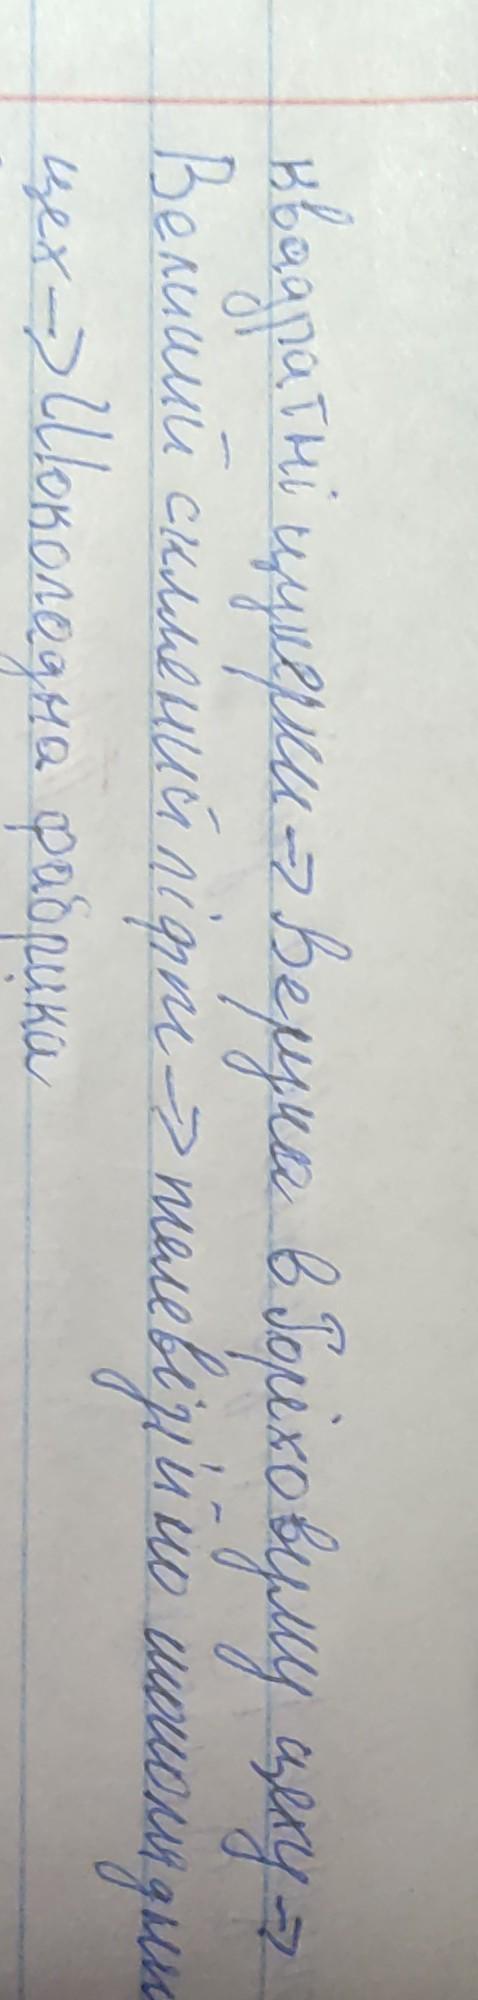 квадратні цукерки → Верука в Горіховуму цеху →
Великий скляний ліфт → телевізійно шоколадний
цех → Шоколадна фабрика